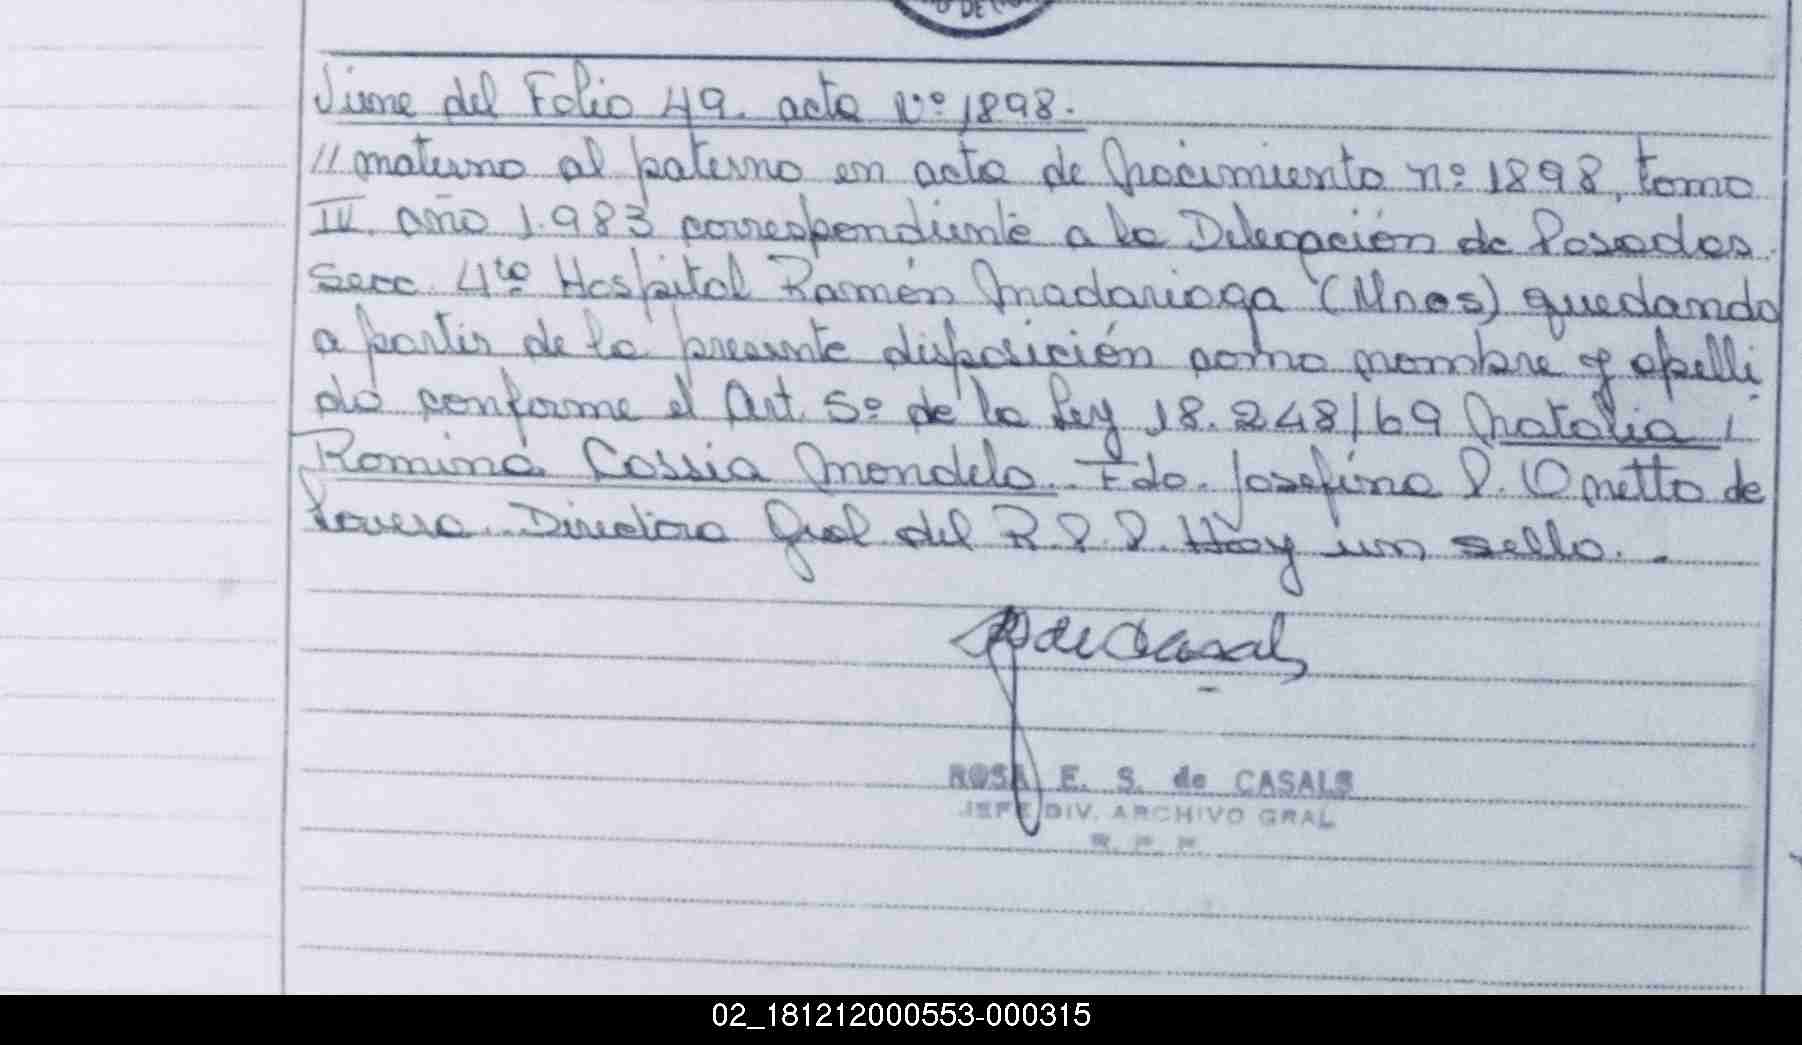 Viene del Folio 49. acta Nº 1898.
// materno al paterno en acta de Nacimiento nº 1898, tomo
IV. año 1.983 correspondiente a la Delegación de Posadas.
Secc. 4ta Hospital Ramón Madariaga (Mnes) quedando
a partir de la presente disposición como nombre y apelli
do conforme el Art. 5º de la Ley 18.248/69 Natalia
Romina Cossia Mondelo. Fdo. Josefina P. Ometto de
Lovera. Directora Gral del R.P.P. Hay un sello. -
de Casals
ROSA E. S. de CASALS
JEFE DIV. ARCHIVO GRAL
R. P. P.
02_181212000553-000315